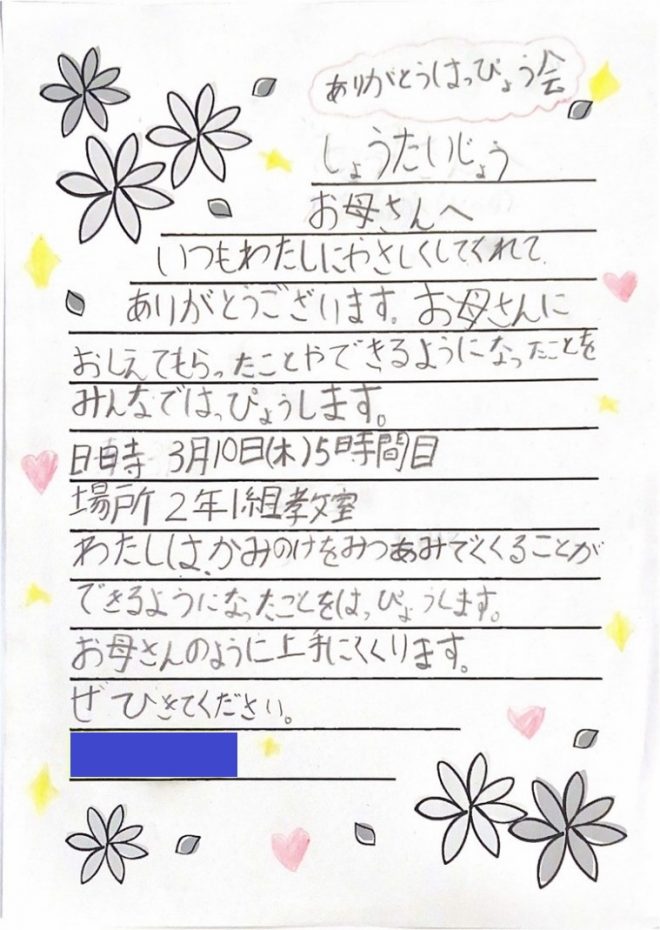 ありがとうはっぴょう会
しょうたいじょう
お母さんへ
いつもわたしにやさしくしてくれて、
ありがとうございます。お母さんに
おしえてもらったことやできるようになったことを
みんなではっぴょうします。
日時 3月10日(木)5時間目
場所 2年1組教室
わたしは、かみのけをみつあみでくくることが
できるようになったことをはっぴょうします。
お母さんのように上手にくくります。
ぜひきてください。